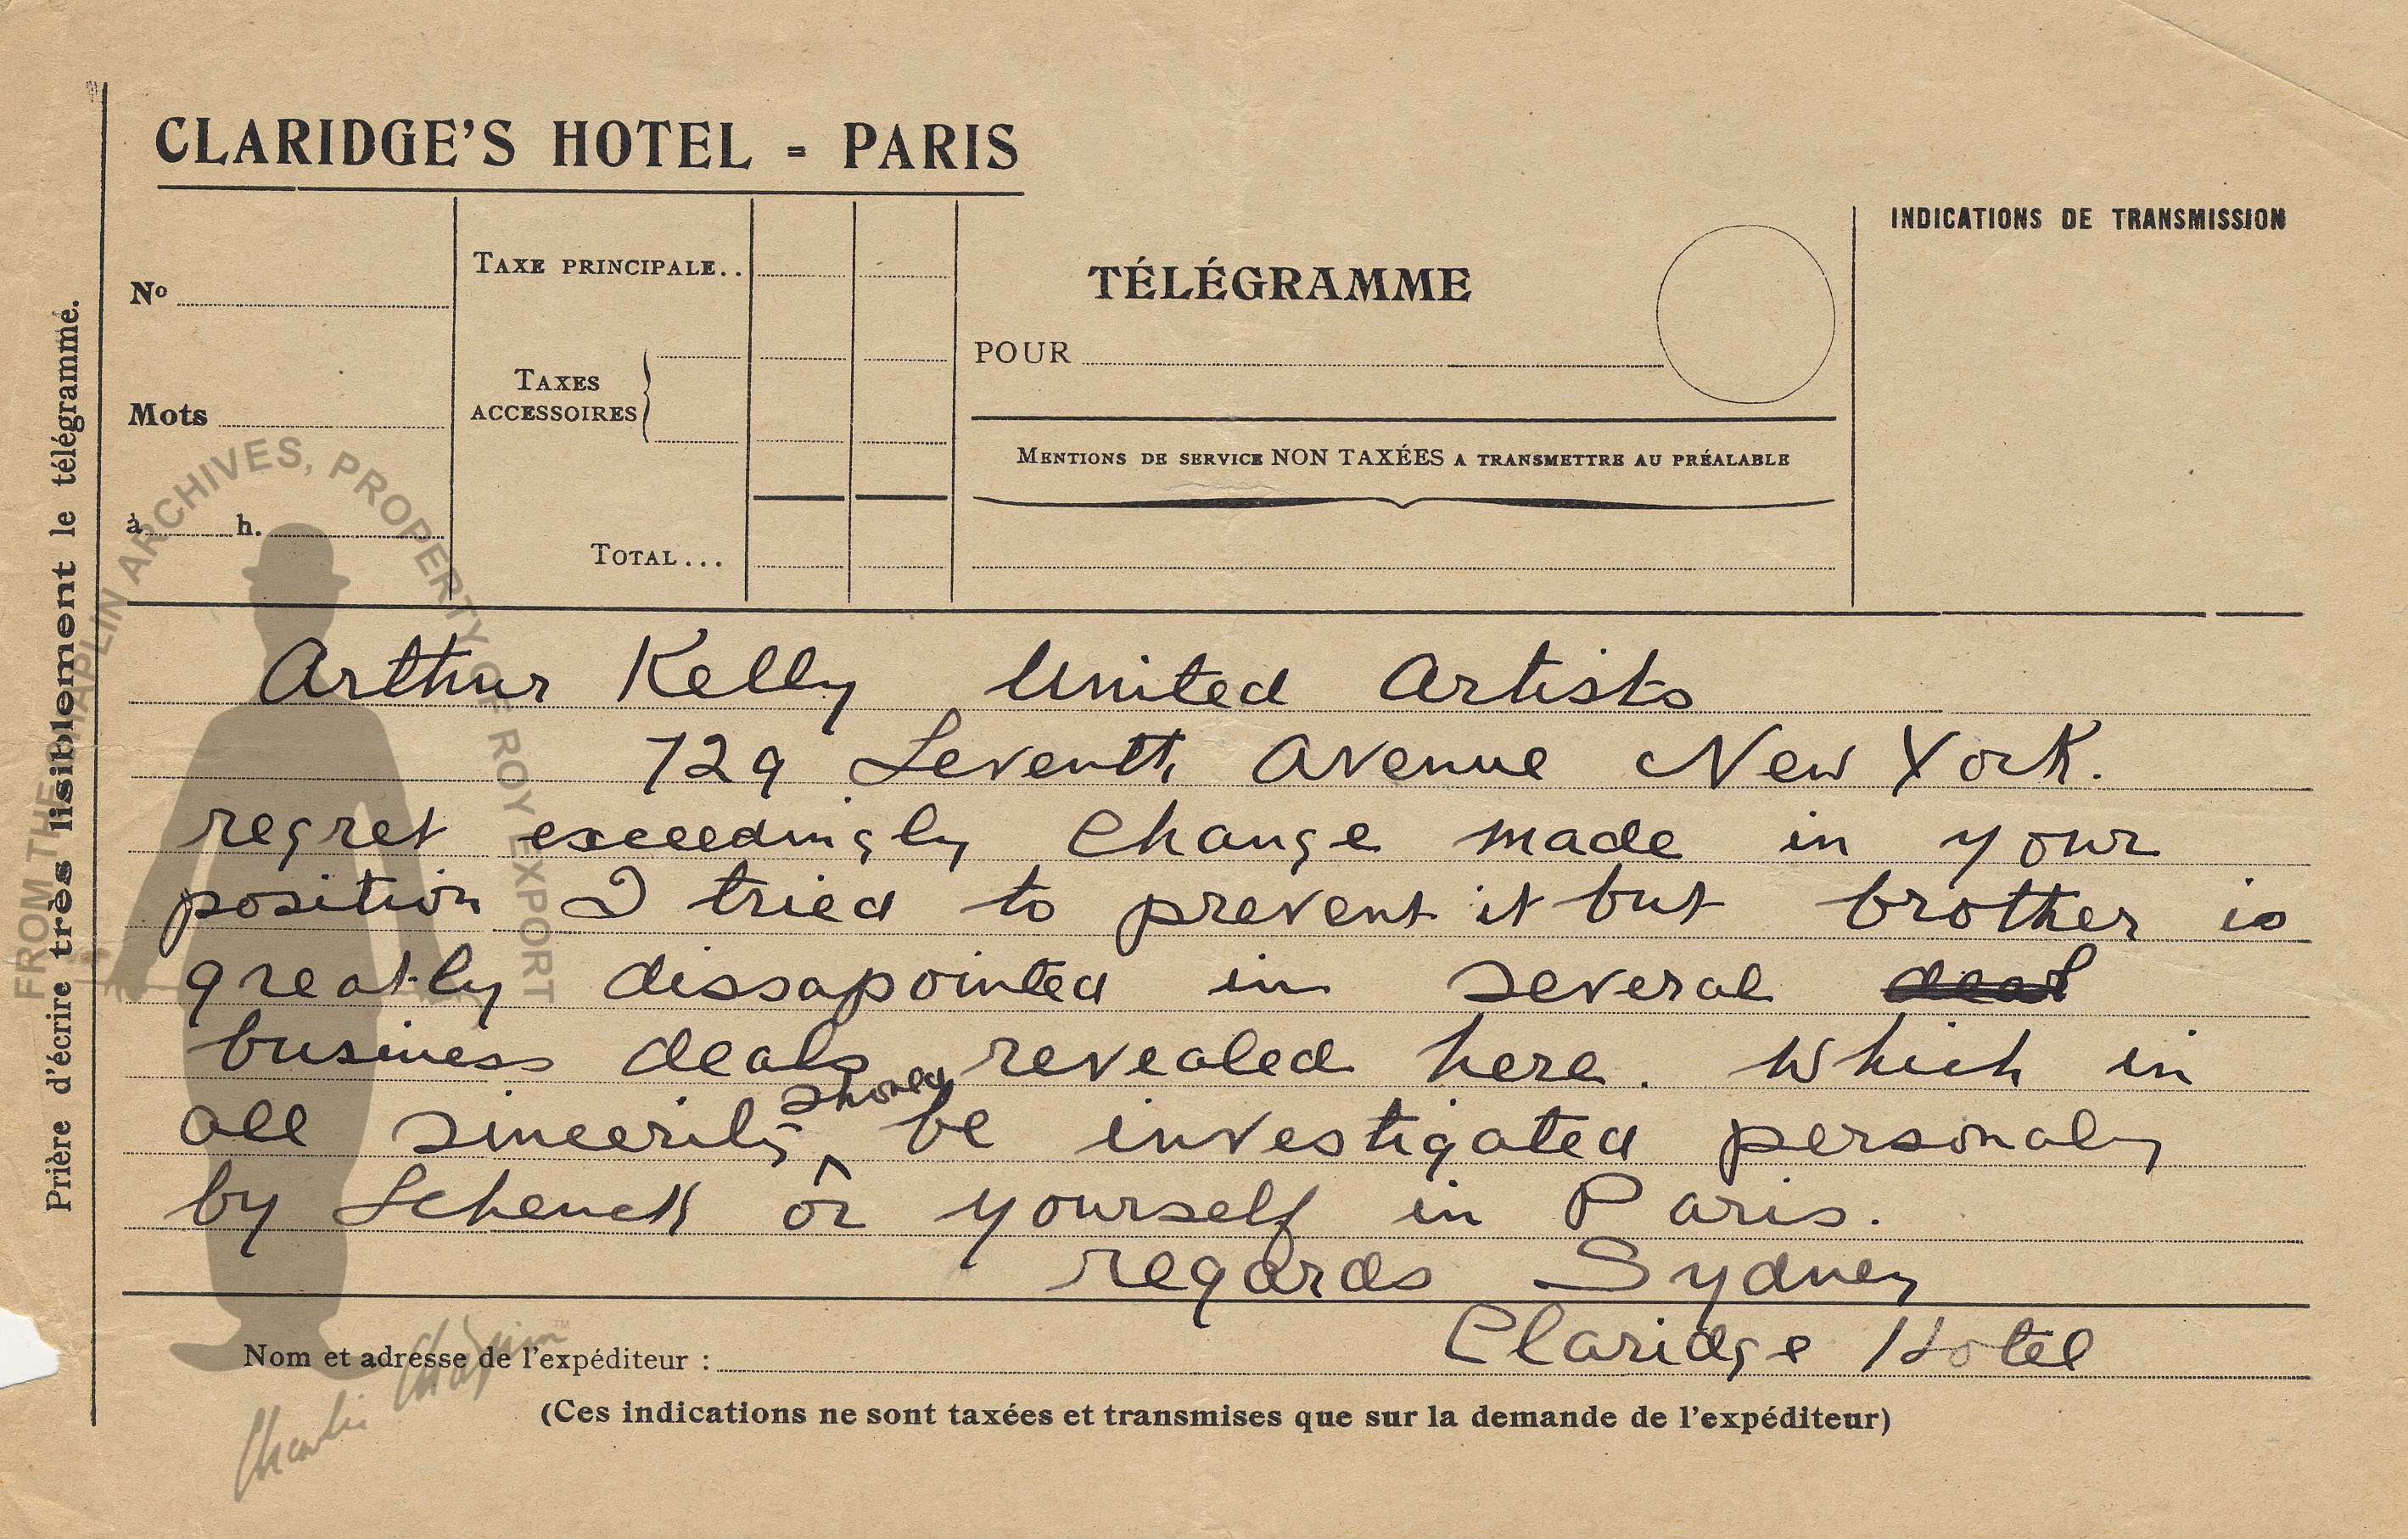 CLARIDGE'S HOTEL - PARIS
INDICATIONS DE TRANSMISSION
Nº
TAXE PRINCIPALE..
TÉLÉGRAMME
POUR
Mots
TAXES
ACCESSOIRES
MENTIONS DE SERVICE NON TAXÉES A TRANSMETTRE AU PRÉALABLE
à h.
TOTAL...
Prière d'écrire très lisiblement le télégramme.
FROM THE CHAPLIN ARCHIVES, PROPERTY OF ROY EXPORT
Arthur Kelly United Artists
729 Seventh Avenue New York.
regret exceedingly change made in your
position I tried to prevent it but brother is
greatly dissapointed in several deal
business deals revealed here. Which in
should
all sincerity be investigated personaly
by Schenck or yourself in Paris.
regards Sydney
Claridge Hotel
Nom et adresse de l'expéditeur :
(Ces indications ne sont taxées et transmises que sur la demande de l'expéditeur)
Charlie Chaplin